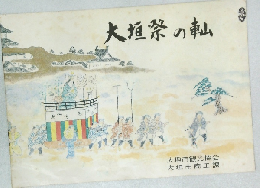 大垣祭の軕
大垣市観光協会
大垣市商工課